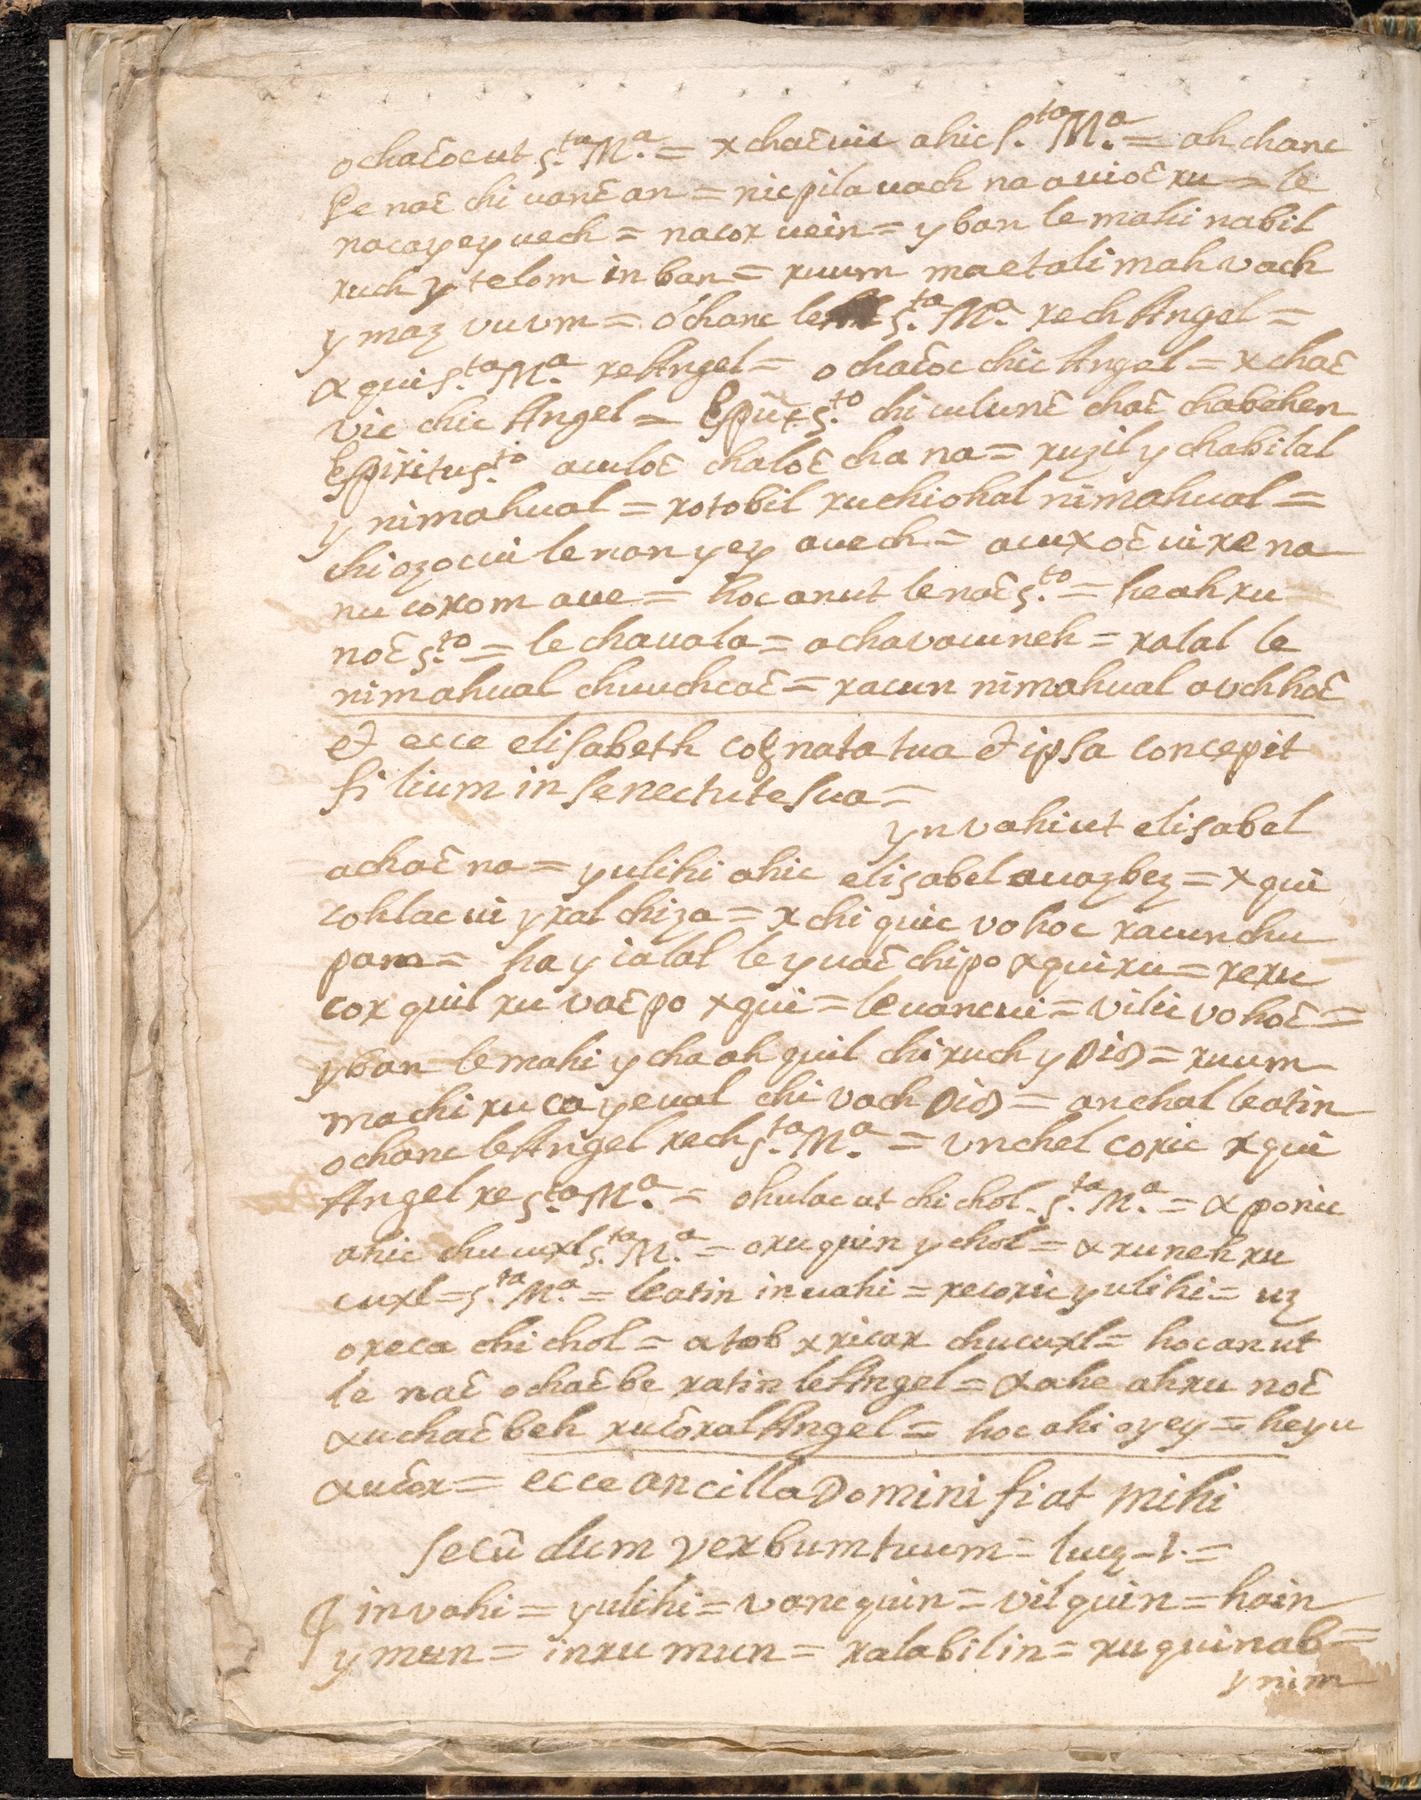 ochaɛ̄ocut S.ta M.a = xchaɛ̄vic ahic S.ta M.a = ah chanc
le naɛ̄ chi vanɛ̄an = nicpila vach na avioɛ̄ xu = le
nacayey vech = nacox vein = y ban le mahi nabil
ruch y telom in ban = ruum maetali mah vach
y maz vuvm = óchanc le S.ta M.a rech Angel =
xqui S.ta M.a re Angel = ochaɛ̄oc chic Angel = xchaɛ̄
vic chic Angel = Espũ S.to chi culunɛ̄ chaɛ̄ chabehen
Espiritu S.to aculoɛ̄ chaloɛ̄ cha na = ruzil y chabilal
y nimahual = rotobil ruchiohal nimahual =
chi ozocui le nan yey avech = acuxoɛ̄ vi re na
nu coxom ave = hoc anut le naɛ̄ S.to = heah ru
noɛ̄ S.to = le chavala = achavacuneh = ralal le
nimahual chuuchcaɛ̄ = racun nimahual avchhoɛ̄
et ecce elisabeth cognata tua et ipsa concepit
filium in senectute sua =
yn vahiut elisabel
achaɛ̄ na = yulihi ahic elisabel auazbez = xqui
cohlac vi yxal chiza = xchi quic vohoc racunchu
pam = hay ialal le y uaɛ̄ chipo xquiru = reru
cox quil ru vaɛ̄po xqui = levancui = vilic vohoɛ̄ =
y ban le mahi y cha ah quil chi ruch y Dios = ruum
machi ru cayeval chi vach Dios = anchal leatin
ochanc le Angel rech S.ta M.a = vnchel coric xqui
Angel re S.ta M.a = ohulac ut chi chol. S.ta M.a = xponic
ahic chucuxl S.ta M.a = oxuquin y chol = xruneh ru
cuxl = S.ta M.a = leatin in vahi = recoric yulihi = uz
oreca chi chol = atob xricar chucuxl = hocanut
le naɛ̄ ochaɛ̄be ratin le Angel = xahe ahru noɛ̄
xuchaɛ̄beh ruɛ̄oral Angel = hoc ahi oyey = heyu
xuɛ̄ox = ecce ancilla Domini fiat mihi
secũdum verbum tuum = lucȩ - 1. =
in vahi = yulihi = vanc quin = vil quin = hain
y mun = inru mun = ralabil in = ruquinab =
y nim